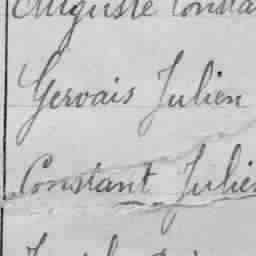 Auguste Consta
Gervais Julien
Constant Julie